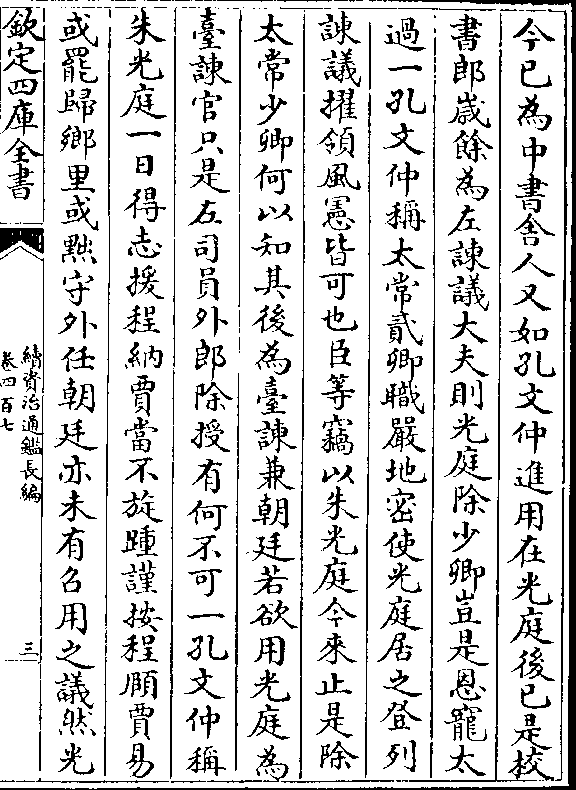 今已為中書舍人又如孔文仲進用在光庭後已是校
書郎歲餘為左諫議大夫則光庭除少卿豈是恩寵太
過一孔文仲稱太常貳卿職嚴地密使光庭居之登列
諫議擢領風憲皆可也臣等竊以朱光庭今來止是除
太常少卿何以知其後為臺諫兼朝廷若欲用光庭為
臺諫官只是左司員外郎除授有何不可一孔文仲稱
朱光庭一日得志援程納賈當不旋踵謹按程頤賈易
或罷歸鄉里或黜守外任朝廷亦未有召用之議然光
欽定四庫全書
續資治通鑑長編
卷四百七
三